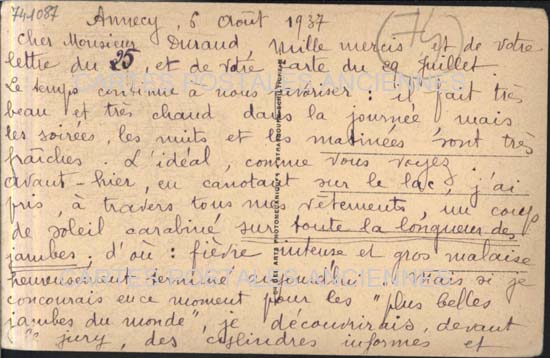 741087
Annecy, 6 Août 1937
(74)
cher Monsieur Durand, Mille mercis et de votre
lettre du 25, et de votre carte du 29 Juillet.
CARTES POSTALES ANCIENNES
Le temps continue à nous favoriser : il fait très
beau et très chaud dans la journée mais
les soirées, les nuits et les matinées sont très
fraîches. L'idéal, comme vous voyez.
avant-hier, en canotant sur le lac, j'ai
pris, à travers tous mes vêtements, un coup
de soleil carabiné sur toute la longueur des
jambes, d'où : fièvre intense et gros malaise
CARTES POSTALES ANCIENNES
heureusement terminé aujourd'hui. Mais si je
concourais en ce moment pour les "plus belles
jambes du monde", je découvrirais, devant
jury, des cylindres informes et